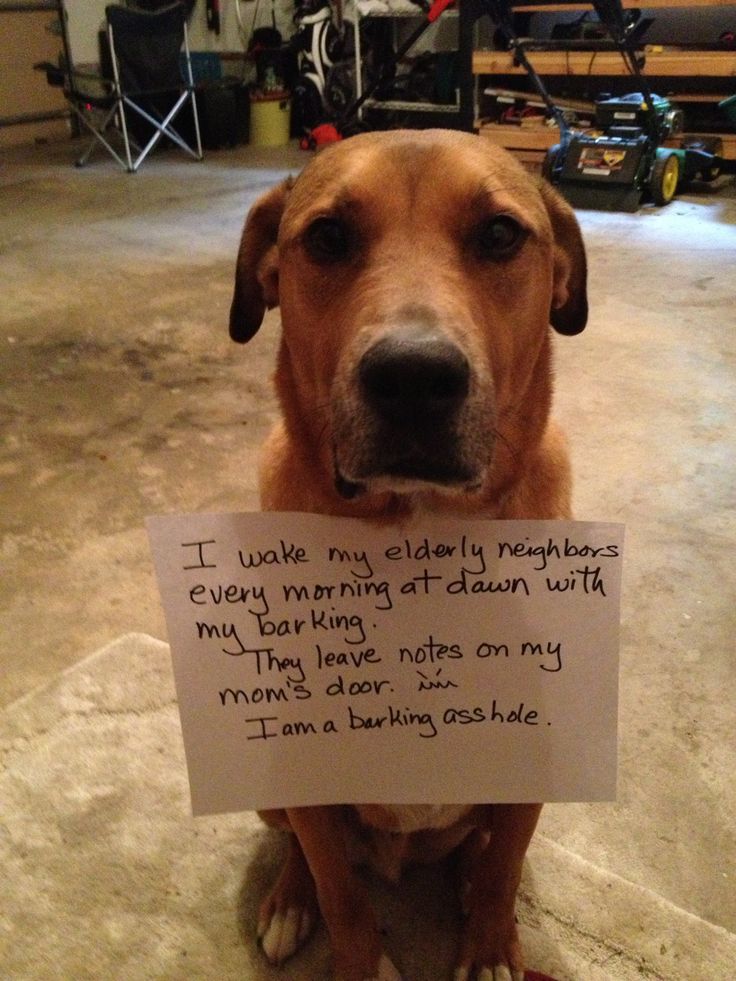 I wake my elderly neighbors
every morning at dawn with
my barking.
They leave notes on my
mom's door.
I am a barking asshole.